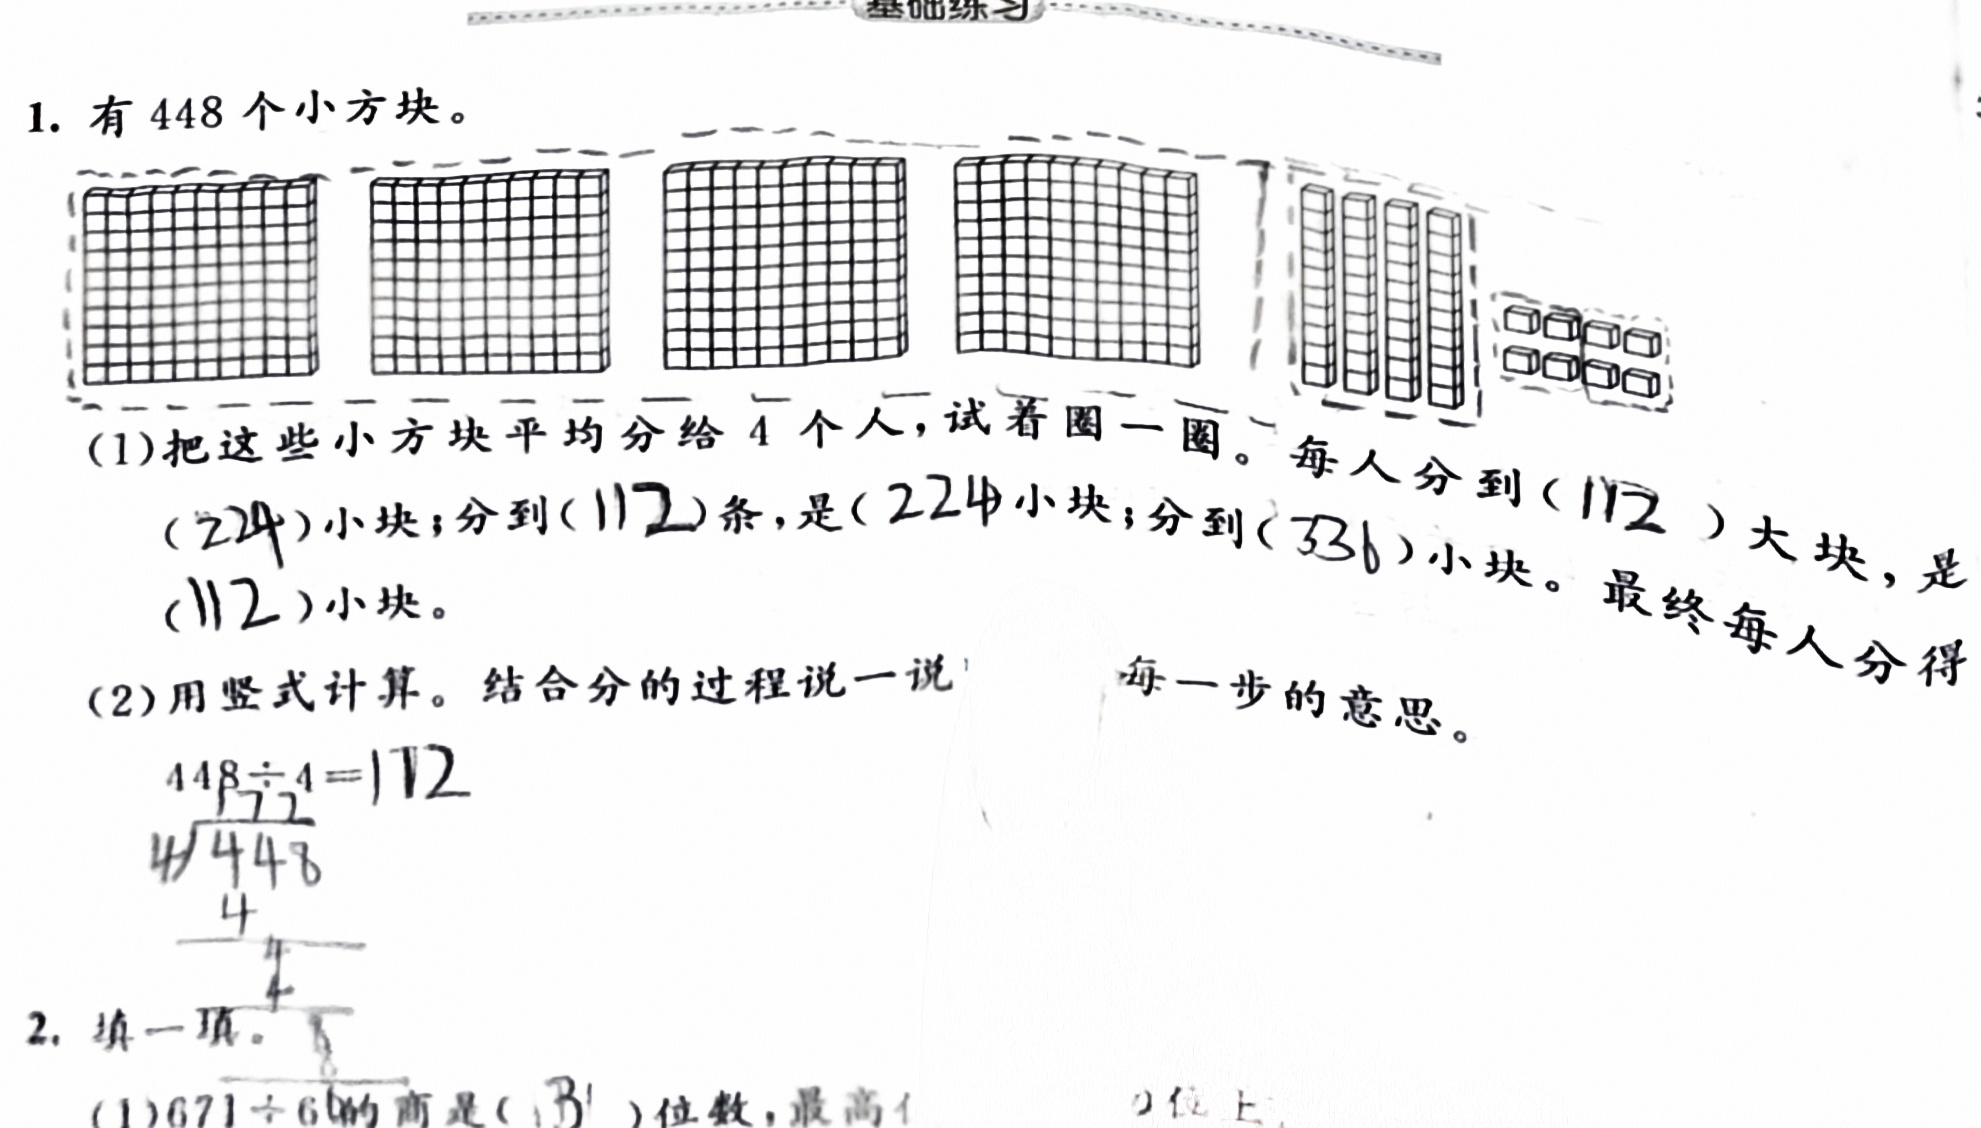 基础练习
1. 有 448 个小方块。
(1)把这些小方块平均分给 4 个人,试着圈一圈。每人分到(112)大块,是
(224)小块;分到(112)条,是(224小块;分到(336)小块。最终每人分得
(112)小块。
(2)用竖式计算。结合分的过程说一说 每一步的意思。
448÷4=112
112
4)448
4
4
4
8
8
2. 填一填。
(1)671÷6的商是(3)位数,最高 位上